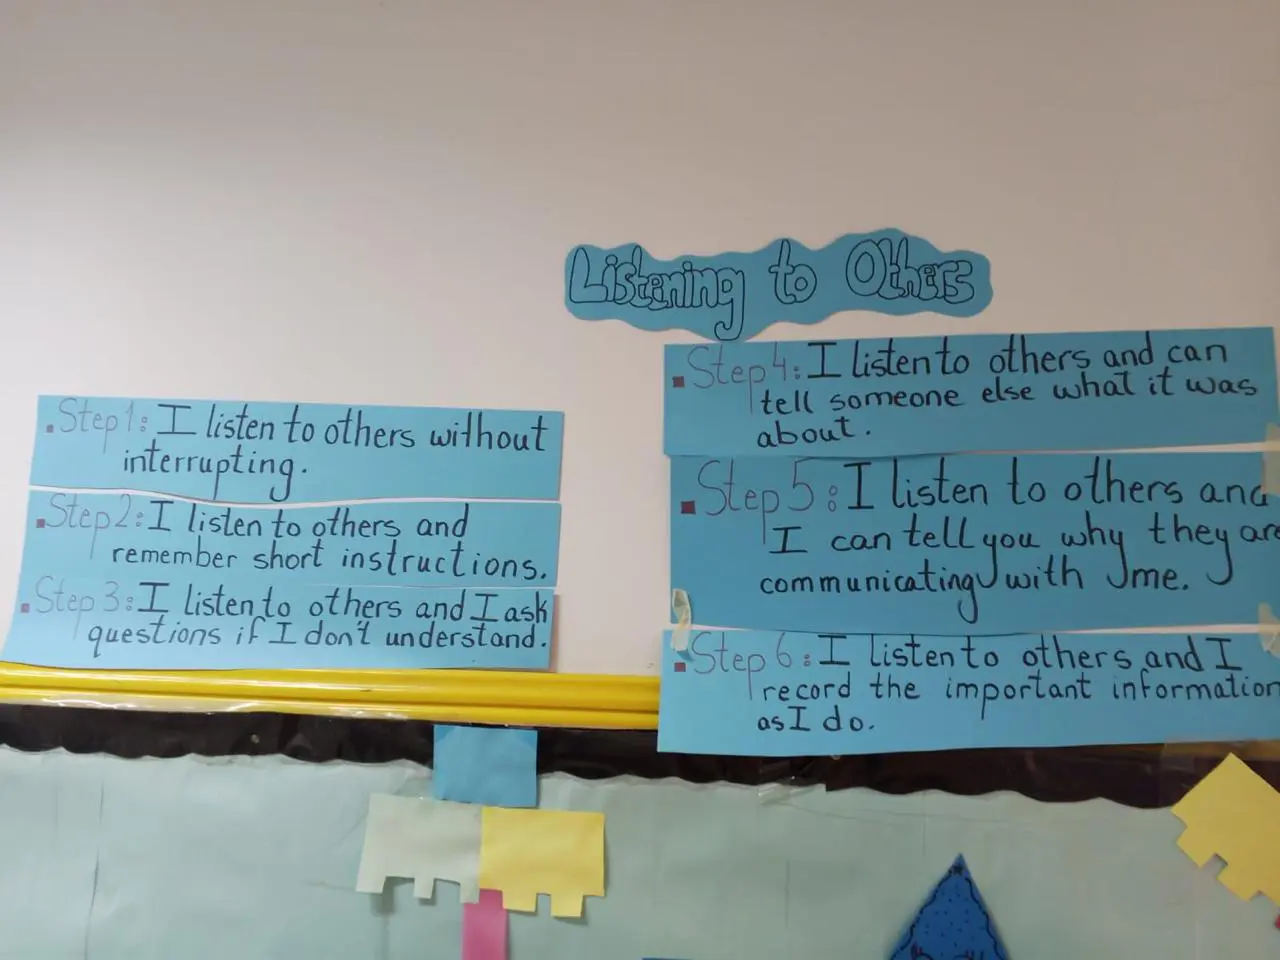 Listening to Others
▪ Step 1: I listen to others without
interrupting.
▪ Step 2: I listen to others and
remember short instructions.
▪ Step 3: I listen to others and I ask
questions if I don't understand.
▪ Step 4: I listen to others and can
tell someone else what it was
about.
▪ Step 5: I listen to others and
I can tell you why they are
communicating with me.
▪ Step 6: I listen to others and I
record the important information
as I do.